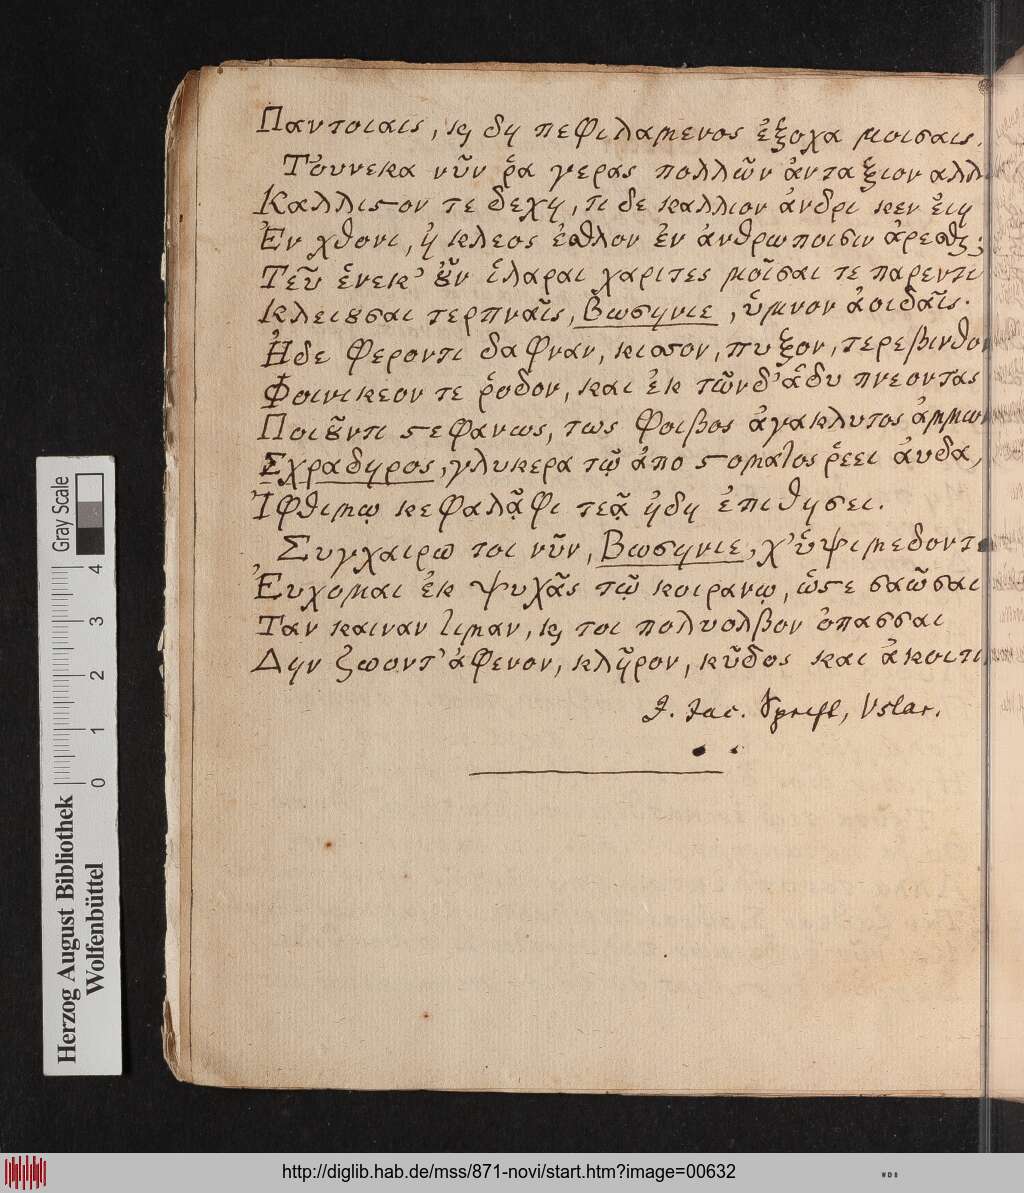 Παντοιαις, κ̀ δη πεφιλαμενος ἐξοχα μοισαις.
Τ'ουνεκα νῦν ῥα γερας πολλῶν ἀνταξιον αλλ
Καλλιστον τε δεχη, τι δε καλλιον ἀνδρὶ κεν εἰη
Ἐν χθονι, ἠ κλεος ἐσθλον ἐν ἀνθρωποισιν ἀρεσθαι;
Τεῦ ἑνεκ' οὖν ἱλαραι χαριτες μοῖσαι τε παρεντι
Κλειουσαι τερπναῖς, Βωσηνιε, ὑμνον ἀοιδαῖς.
Ἠδε φεροντι δαφναν, κισσον, πυξον, τερεβινθον
Φοινικεον τε ῥοδον, και ἐκ τῶνδ' ἁδυ πνεοντας
Ποιοῦντι στεφανως, τως Φοιβος ἀγακλυτος ἀμμων
Σχραδηρος, γλυκερα τῶ ἀπο στοματος ῥεει ἀυδα,
Ἰφθιμῳ κεφαλᾷφι τεᾷ ἠδη ἐπιθησει.
Συγχαιρω τοι νῦν, Βωσηνιε, χ' ὑψιμεδοντ
Ἐυχομαι ἐκ ψυχᾶς τῷ κοιρανῳ, ὡστε σαῶσαι
Ταν καιναν τιμαν, κ̀ τοι πολυολβον ὀπασσαι
Δην ζωοντ' ἀφενον, κλῆρον, κῦδος και ἀκοιτι
J. Jac. Uslar.
Gray Scale
4
3
2
1
0
Herzog August Bibliothek
Wolfenbüttel
http://diglib.hab.de/mss/871-novi/start.htm?image=00632